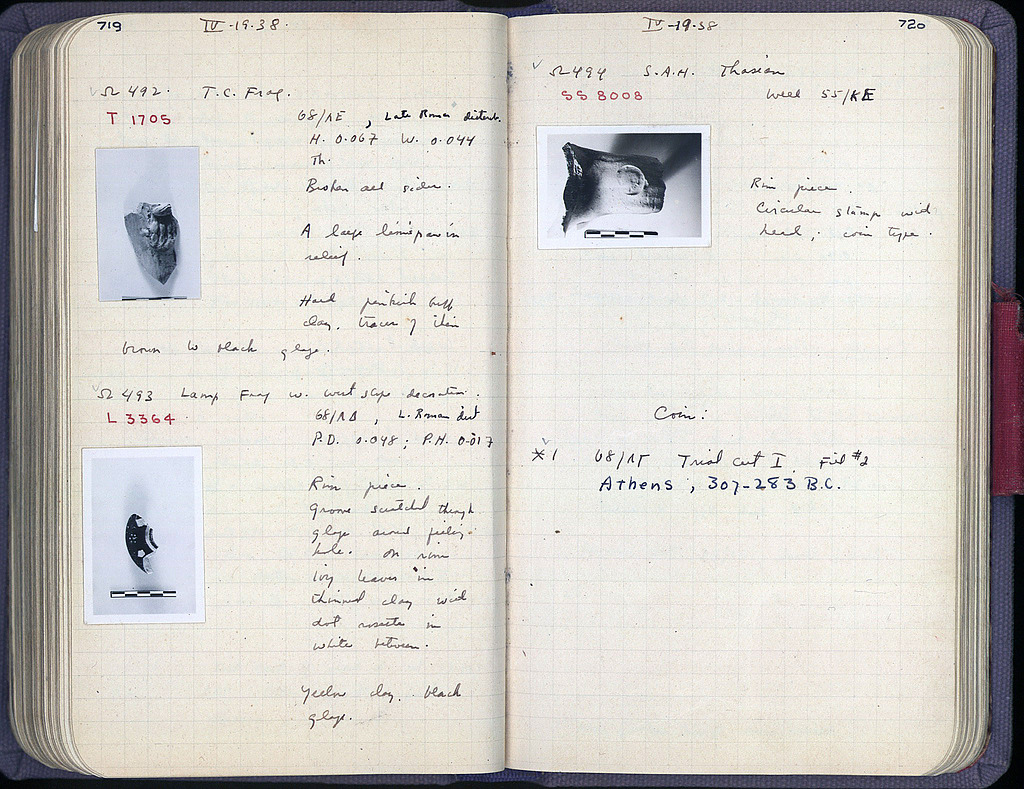 719
IV-19-38.
Ω 492. T.C. Frag.
T 1705
68/ΛE, Late Roman disturb.
H. 0.067 W. 0.044
Th.
Broken all sides.
A large lion's paw in
relief.
Hard pinkish buff
clay, traces of thin
brown to black glaze.
Ω 493 Lamp Frag w. west slope decoration.
L 3364
68/ΛΔ, L. Roman dist
P.D. 0.048; P.H. 0.017
Rim piece.
Groove scratched through
glaze around filling-
hole. On rim
ivy leaves in
thinned clay with
dot rosette in
white between.
Yellow clay. black
glaze.
IV-19-38
720
Ω 494 S.A.H. Thasian
SS 8008
Well 55/KE
Rim piece.
Circular stamp with
head; coin type.
Coin:
*1 68/ΛΓ Trial cut I. Fill #2
Athens, 307-283 B.C.